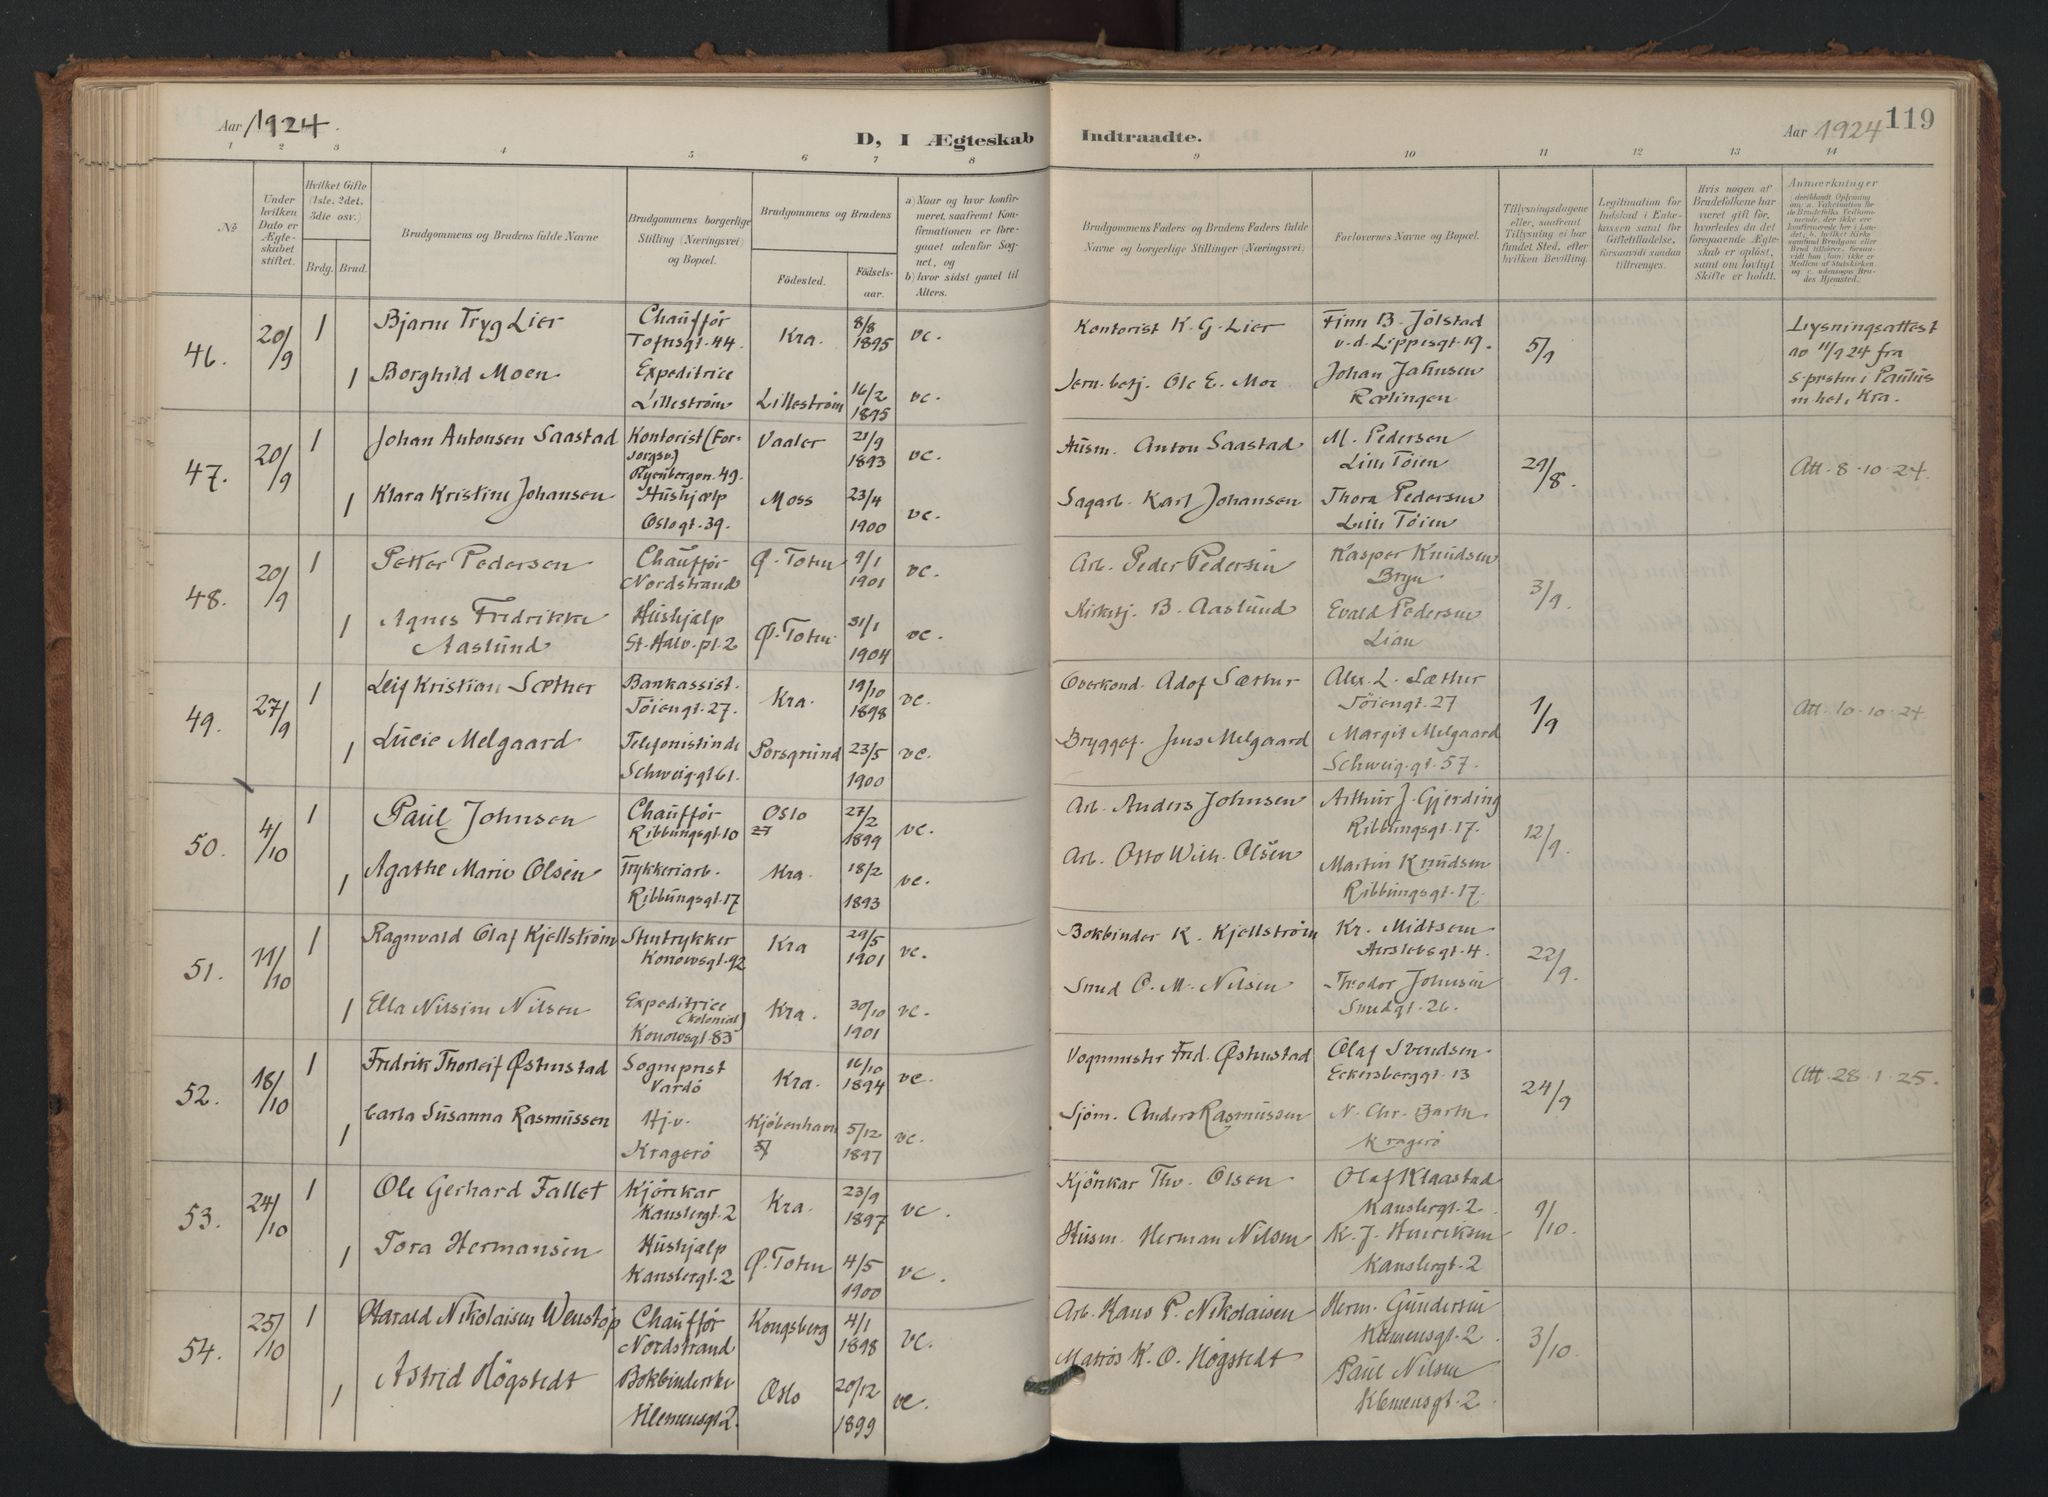 Aar 1924.
D, I Ægteskab Indtraadte.
Aar 1924 119
1 2 3 4 5 6 7 8 9 10 11 12 13 14
No
Under hvilken Dato er Ægteskabet stiftet.
Hvilket Gifte (1ste. 2det. 3die osv.)
Brdg. Brud.
Brudgommens og Brudens fulde Navne
Brudgommens borgerlige Stilling (Næringsvei) og Bopæl.
Brudgommens og Brudens
Födested. Födselsaar.
a) Naar og hvor konfirmeret, saafremt Konfirmationen er foregaaet udenfor Sognet, og
b) hvor sidst gaaet til Alters.
Brudgommens Faders og Brudens Faders fulde Navne og borgerlige Stillinger (Næringsvei).
Forlovernes Navne og Bopæl.
Tillysningsdagene eller, saafremt Tillysning ei har fundet Sted, efter hvilken Bevilling.
Legitimation for Indskud i Enkekassen samt for Giftetilladelse, forsaavidt saadan tiltrænges.
Hvis nogen af Brudefolkene har været gift för, hvorledes da det foregaaende Ægteskab er oplöst, samt om lovligt Skifte er holdt.
Anmærkninger
46. 20/9 1 Bjarne Tryg Lier Chauffør Tofusgt. 44. Kra. 8/8 1895 vc. Kontorist K. G. Lier Finn B. Jölstad v. d. Lippesgt. 19. 5/9
Lysningsattest av 11/9 24 fra s.prstn i Paulus mhet, Kra.
1 Borghild Moen Expeditrice Lilleström Lilleström 16/2 1895 vc. Jern.betj. Ole E. Moe Johan Jahnsen Rælingen
47. 20/9 1 Johan Antonsen Saastad Kontorist (Forsorgsv.) Ryenbergvn. 49. Vaaler 21/9 1893 vc. Husm. Anton Saastad M. Pedersen Lille Töien 29/8 Att. 8.10.24.
1 Klara Kristine Johansen Hushjælp Oslogt. 39. Moss 23/4 1900 vc. Sagarb. Karl Johansen Thora Pedersen Lille Töien
48. 20/9 1 Petter Pedersen Chauffør Nordstrand Ø. Toten 9/1 1901 vc. Arb. Peder Pedersen Kasper Knudsen Bryn 3/9.
1 Agnes Fredrikke Aaslund Hushjælp St. Halv. pl. 2 Ø. Toten 31/1 1904 vc. Kirketj. B. Aaslund Evald Pedersen Lian
49. 27/9 1 Leif Kristian Sæther Bankassist. Töiengt. 27. Kra. 19/10 1898 vc. Overkond. Adof Sæther Alex. L. Sæther Töiengt. 27 1/9 Att. 10.10.24.
1 Lucie Melgaard Telefonistinde Schweig.gt 61. Porsgrund 23/5 1900 vc. Bryggef. Jens Melgaard Margit Melgaard Schweig.gt. 57.
50. 4/10 1 Paul Johnsen Chauffør Ribbungsgt. 10 Oslo 27/2 1899 vc. Arb. Anders Johnsen Arthur J. Gjerding Ribbungsgt. 17. 12/9.
1 Agathe Marie Olsen Trykkeriarb. Ribbungsgt. 17 Kra. 18/2 1893 vc. Arb. Otto Wilh. Olsen Martin Knudsen Ribbungsgt. 17.
51. 11/10 1 Ragnvald Olaf Kjellström Stentrykker Konowsgt. 92 Kra 29/5 1901 vc. Bokbinder K. Kjellström Kr. Midtsem Aurslebsgt. 4. 22/9.
1 Ella Nilsine Nilsen Expeditrice (kolonial) Konowsgt. 83 Kra. 30/10 1901 vc. Smed O. M. Nilsen Theodor Johnsen Smedgt. 26.
52. 18/10 1 Fredrik Thorleif Østenstad Sogneprest Vardö Kra. 16/10 1894 vc. Vognmester Fred. Østenstad Olaf Svendsen Eckersberggt. 13 24/9 Att. 28.1.25.
1 Carla Susanna Rasmussen Hj.v. Kragerö Kjøbenhavn 5/12 1897 vc. Sjøm. Anders Rasmussen N. Chr. Barth Kragerö
53. 24/10 1 Ole Gerhard Fallet Kjörekar Kanslergt. 2 Kra. 23/9 1897 vc. Kjörekar Thv. Olsen Olaf Klaastad Kanslergt. 2. 9/10.
1 Tora Hermansen Hushjalp Kanslergt. 2 Ø. Toten 4/5 1900 vc. Husm. Herman Nilsen K. J. Henriksen Kanslergt. 2
54. 25/10 1 Harald Nikolaisen Wenstöp Chauffør Nordstrand Kongsberg 4/1 1898 vc. Arb. Hans P. Nikolaisen Herm. Gundersen Klemensgt. 2. 3/10.
1 Astrid Högstedt Bokbinderske Klemensgt 2. Oslo 20/12 1899 vc. Matros K. O. Högstedt Paul Nilsen Klemensgt. 2